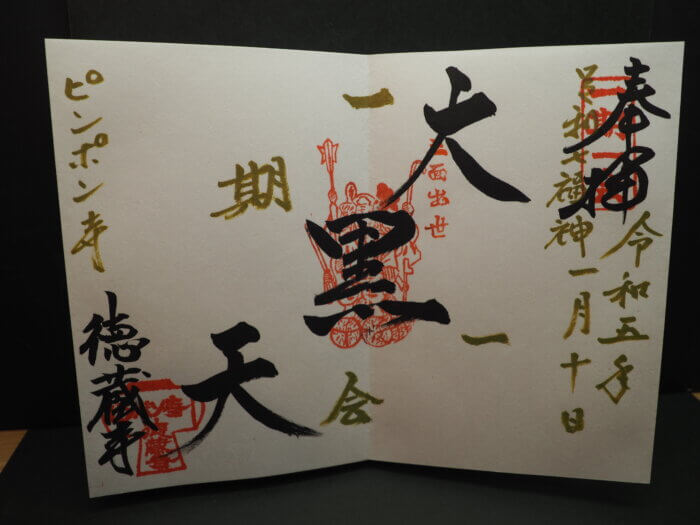 奉拝
令和五年
一月十日
七福神
大黒天
三面出世
一期一会
ピンポン寺
徳蔵寺